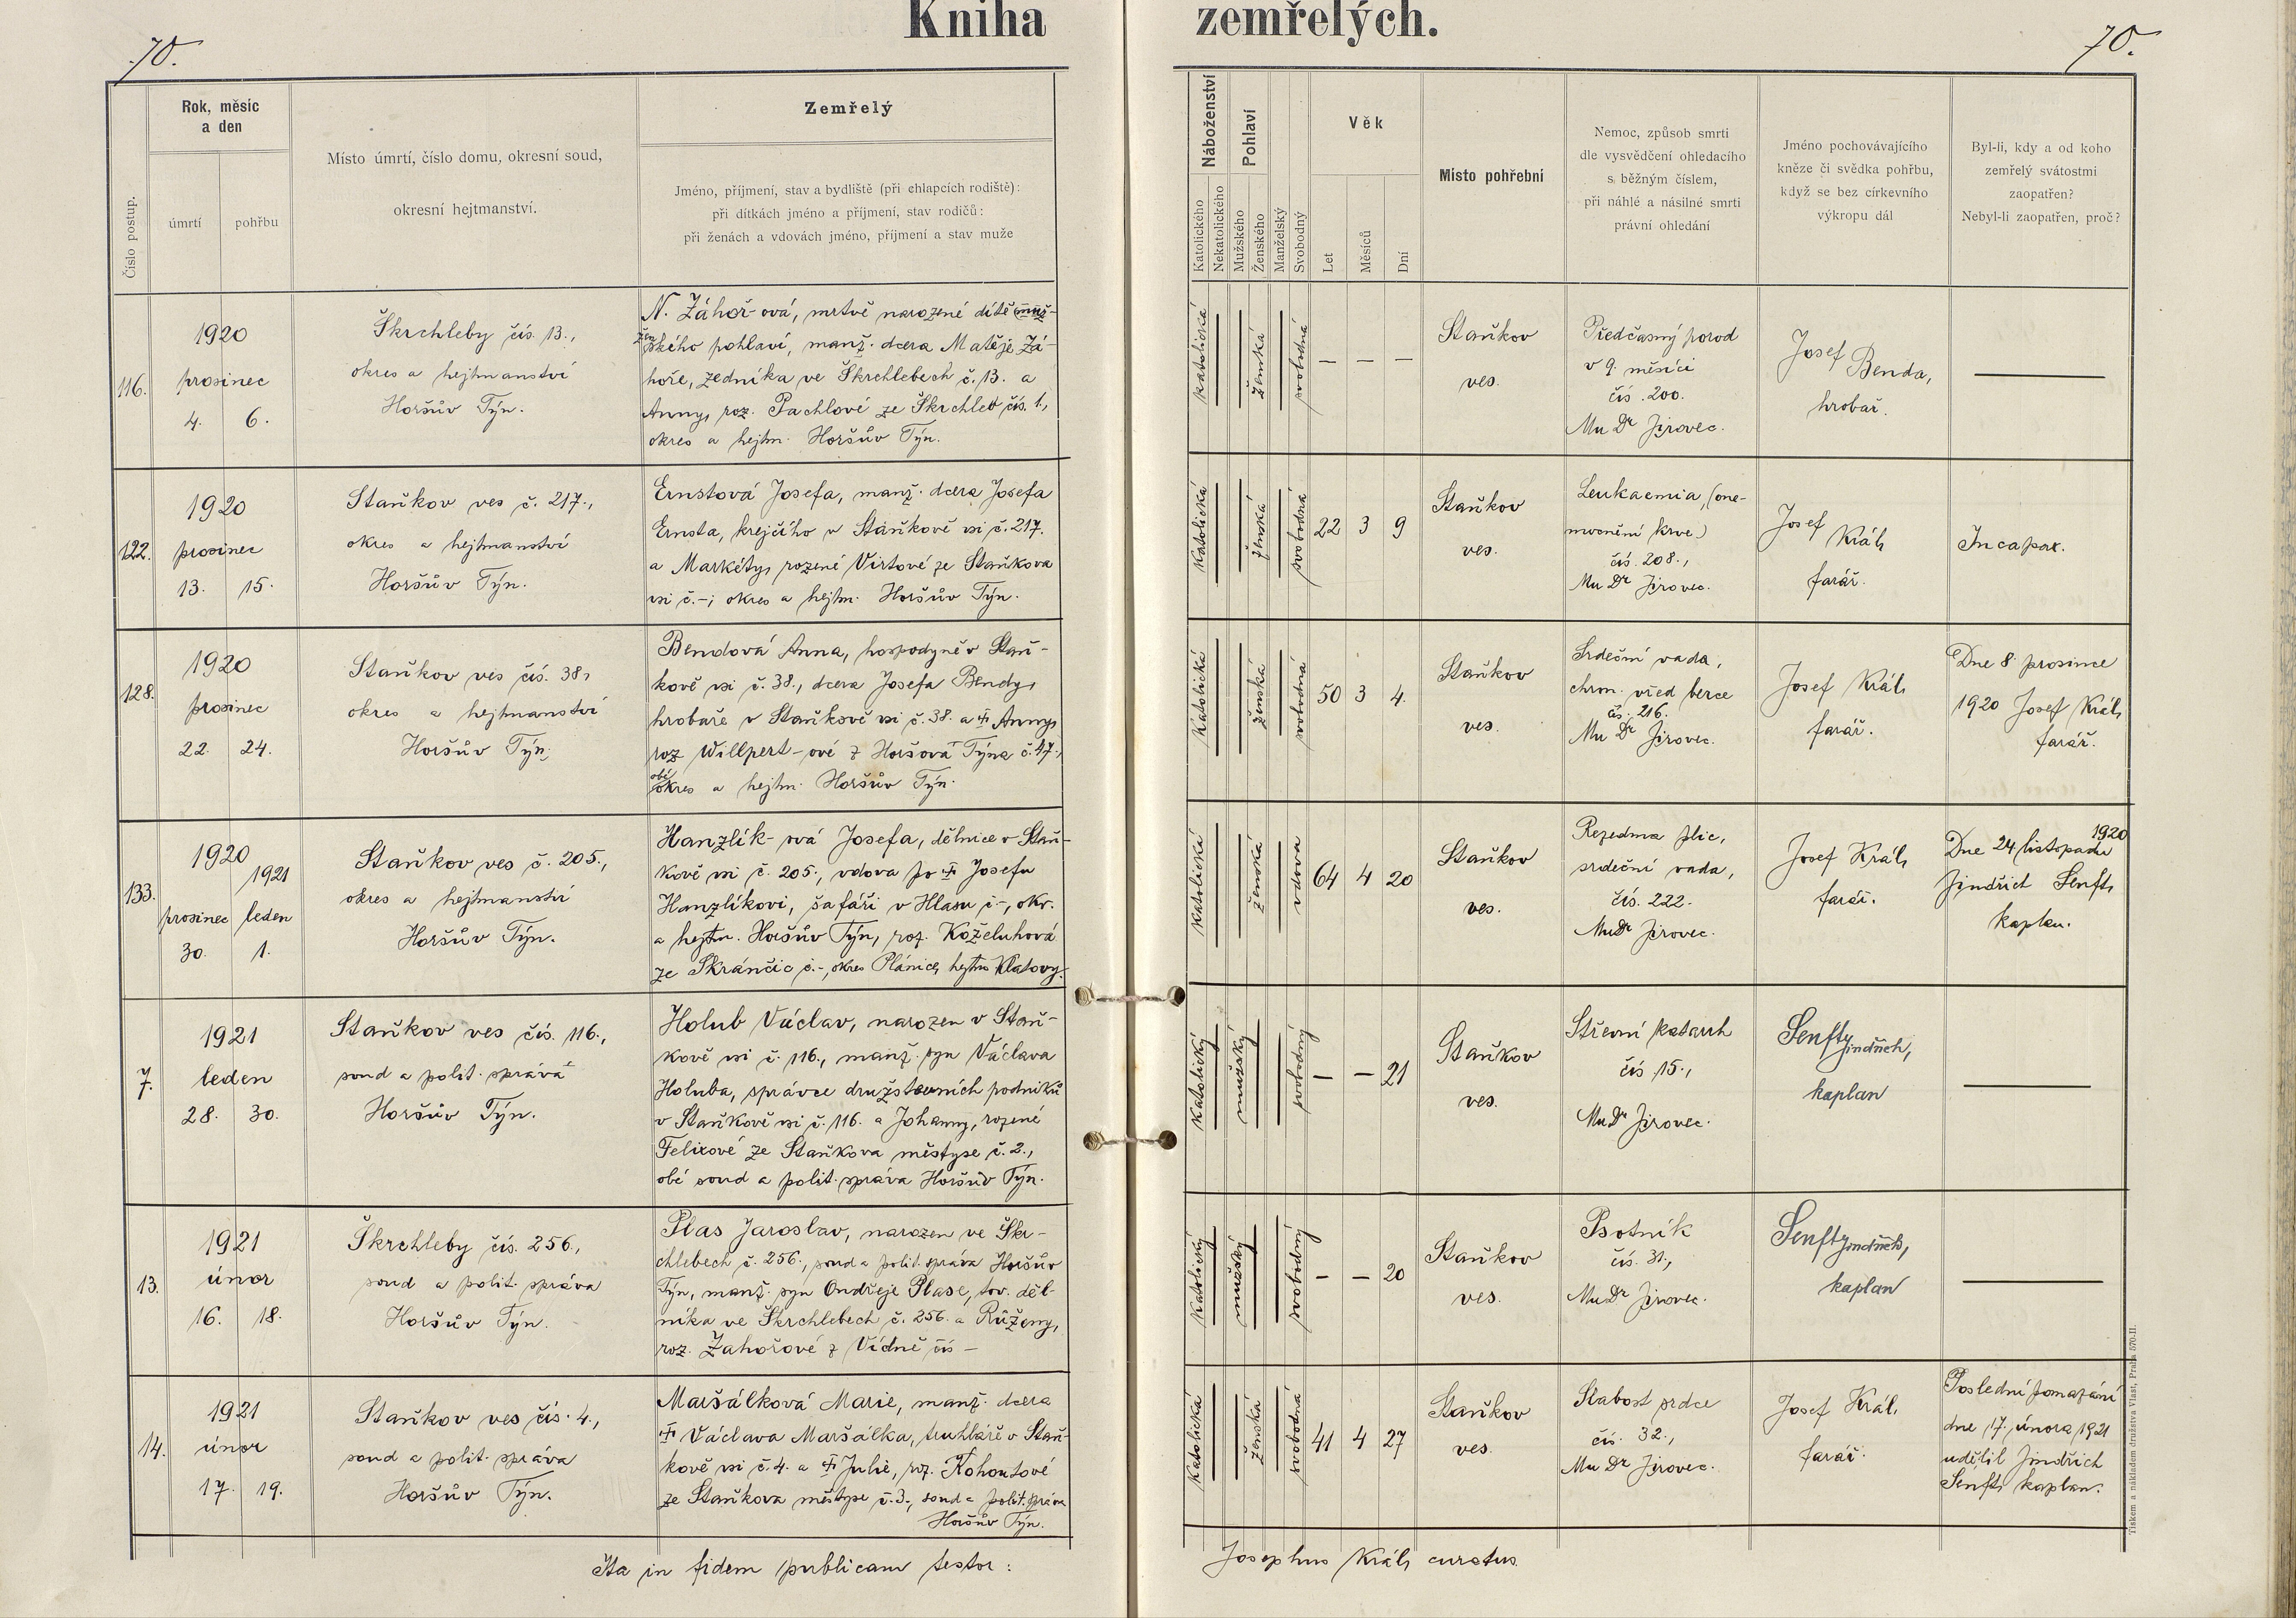 Kniha zemřelých.
70.
70.
Číslo postup.
Rok, měsíc
a den
úmrtí
pohřbu
Místo úmrtí, číslo domu, okresní soud,
okresní hejtmanství.
Zemřelý
Jméno, příjmení, stav a bydliště (při chlapcích rodiště):
při dítkách jméno a příjmení, stav rodičů:
při ženách a vdovách jméno, příjmení a stav muže
Náboženství
Katolického
Nekatolického
Pohlaví
Mužského
Ženského
Manželský
Svobodný
Věk
Let
Měsíců
Dní
Místo pohřební
Nemoc, způsob smrti
dle vysvědčení ohledacího
s běžným číslem,
při náhlé a násilné smrti
právní ohledání
Jméno pochovávajícího
kněze či svědka pohřbu,
když se bez církevního
výkropu dál
Byl-li, kdy a od koho
zemřelý svátostmi
zaopatřen?
Nebyl-li zaopatřen, proč?
116.
1920
prosinec
4. 6.
Škrchleby čís. 13.,
okres a hejtmanství
Horšův Týn.
N. Záhoř-ová, mrtvě narozené dítě muž-
žen
ského pohlaví, manž. dcera Matěje Zá-
hoře, zedníka ve Škrchlebech č. 13. a
Anny, roz. Pachlové ze Škrchleb čís. 1.,
okres a hejtm. Horšův Týn.
katolická
ženská
svobodná
— — —
Staňkov
ves.
Předčasný porod
v 9. měsíci
čís. 200.
MuDr Jírovec.
Josef Benda,
hrobař.
122.
1920
prosinec
13. 15.
Staňkov ves č. 217.,
okres a hejtmanství
Horšův Týn.
Ernstová Josefa, manž. dcera Josefa
Ernsta, krejčího v Staňkově vsi č. 217.
a Markéty, rozené Virtové ze Staňkova
vsi č.–; okres a hejtm. Horšův Týn.
katolická
ženská
svobodná
22 3 9
Staňkov
ves.
Leukaemia, (one-
mocnění krve)
čís. 208.,
MuDr Jírovec.
Josef Král,
farář.
Incapax.
128.
1920
prosinec
22. 24.
Staňkov ves čís. 38,
okres a hejtmanství
Horšův Týn.
Bendová Anna, hospodyně v Staň-
kově vsi č. 38., dcera Josefa Bendy,
hrobaře v Staňkově vsi č. 38. a † Anny,
roz. Willpert-ové z Horšova Týna č. 47.,
obé
okres a hejtm. Horšův Týn.
katolická
ženská
svobodná
50 3 4.
Staňkov
ves.
Srdeční vada,
chron. vřed berce
čís. 216.
MuDr Jírovec.
Josef Král,
farář.
Dne 8. prosince
1920 Josef Král,
farář.
133.
1920
1921
prosinec leden
30. 1.
Staňkov ves č. 205.,
okres a hejtmanství
Horšův Týn.
Hanzlík-ová Josefa, dělnice v Staň-
kově vsi č. 205., vdova po † Josefu
Hanzlíkovi, šafáři v Hlasu č–, okr.
a hejtm. Horšův Týn, roz. Koželuhová
ze Skránčic č.–, okres Plánice, hejtm Klatovy.
katolická
ženská
vdova
64 4 20
Staňkov
ves.
Rozedma plic,
srdeční vada,
čís. 222.
MuDr Jírovec.
Josef Král,
farář.
1920
Dne 24. listopadu
Jindřich Senft,
kaplan.
7.
1921
leden
28. 30.
Staňkov ves čís. 116.,
soud a polit. správa
Horšův Týn.
Holub Václav, narozen v Staň-
kově vsi č. 116., manž. syn Václava
Holuba, správce družstevních podniků
v Staňkově vsi č. 116. a Johanny, rozené
Felixové ze Staňkova městyse č. 2.,
obé soud a polit. správa Horšův Týn.
katolický
mužský
svobodný
— — 21
Staňkov
ves.
Střevní katarrh
čís. 15.,
MuDr Jírovec.
Senft Jindřich,
kaplan
13.
1921
únor
16. 18.
Škrchleby čís. 256.,
soud a polit. správa
Horšův Týn.
Plas Jaroslav, narozen ve Škr-
chlebech č. 256., soud a polit. správa Horšův
Týn, manž. syn Ondřeje Plase, tov. děl-
níka ve Škrchlebech č. 256. a Růženy,
roz. Zahořové z Vídně čís –
katolický
mužský
svobodný
— — 20
Staňkov
ves.
Psotník
čís. 31.,
MuDr Jírovec.
Senft Jindřich,
kaplan
14.
1921
únor
17. 19.
Staňkov ves čís. 4.,
soud a polit. správa
Horšův Týn.
Maršálková Marie, manž. dcera
† Václava Maršálka, truhláře v Staň-
kově vsi č. 4. a † Julie, roz. Kohoutové
ze Staňkova městyse č. 3., soud a polit. správa
Horšův Týn.
katolická
ženská
svobodná
41 4 27
Staňkov
ves.
Slabost srdce
čís. 32.,
MuDr Jírovec.
Josef Král,
farář.
Poslední pomazání
dne 17. února 1921
udělil Jindřich
Senft, kaplan.
Ita in fidem publicam testor:
Josephus Král, curatus
Tiskem a nákladem družstva Vlast, Praha 570-II.